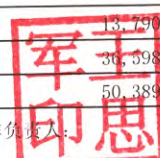 13,790
36,598
50,389
负责人：
王思军印